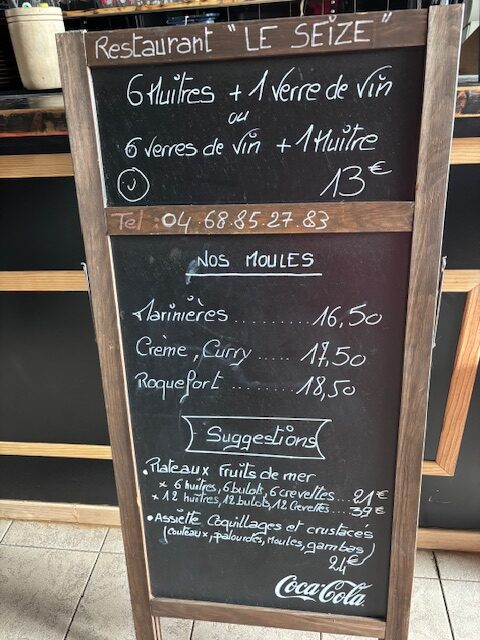 Restaurant "LE SEIZE"
6 Huîtres + 1 verre de vin
ou
6 verres de vin + 1 Huître
13€
Tel : 04.68.85.27.83
NOS MOULES
Marinières ........... 16,50
Crème, Curry ..... 17,50
Roquefort ........... 18,50
Suggestions
• Plateaux Fruits de mer
* 6 huîtres, 6 bulots, 6 crevettes... 21€
* 12 huîtres, 12 bulots, 12 crevettes.... 39€
• Assiette Coquillages et crustacés
(couteaux, palourdes, Moules, gambas)
24€
Coca-Cola